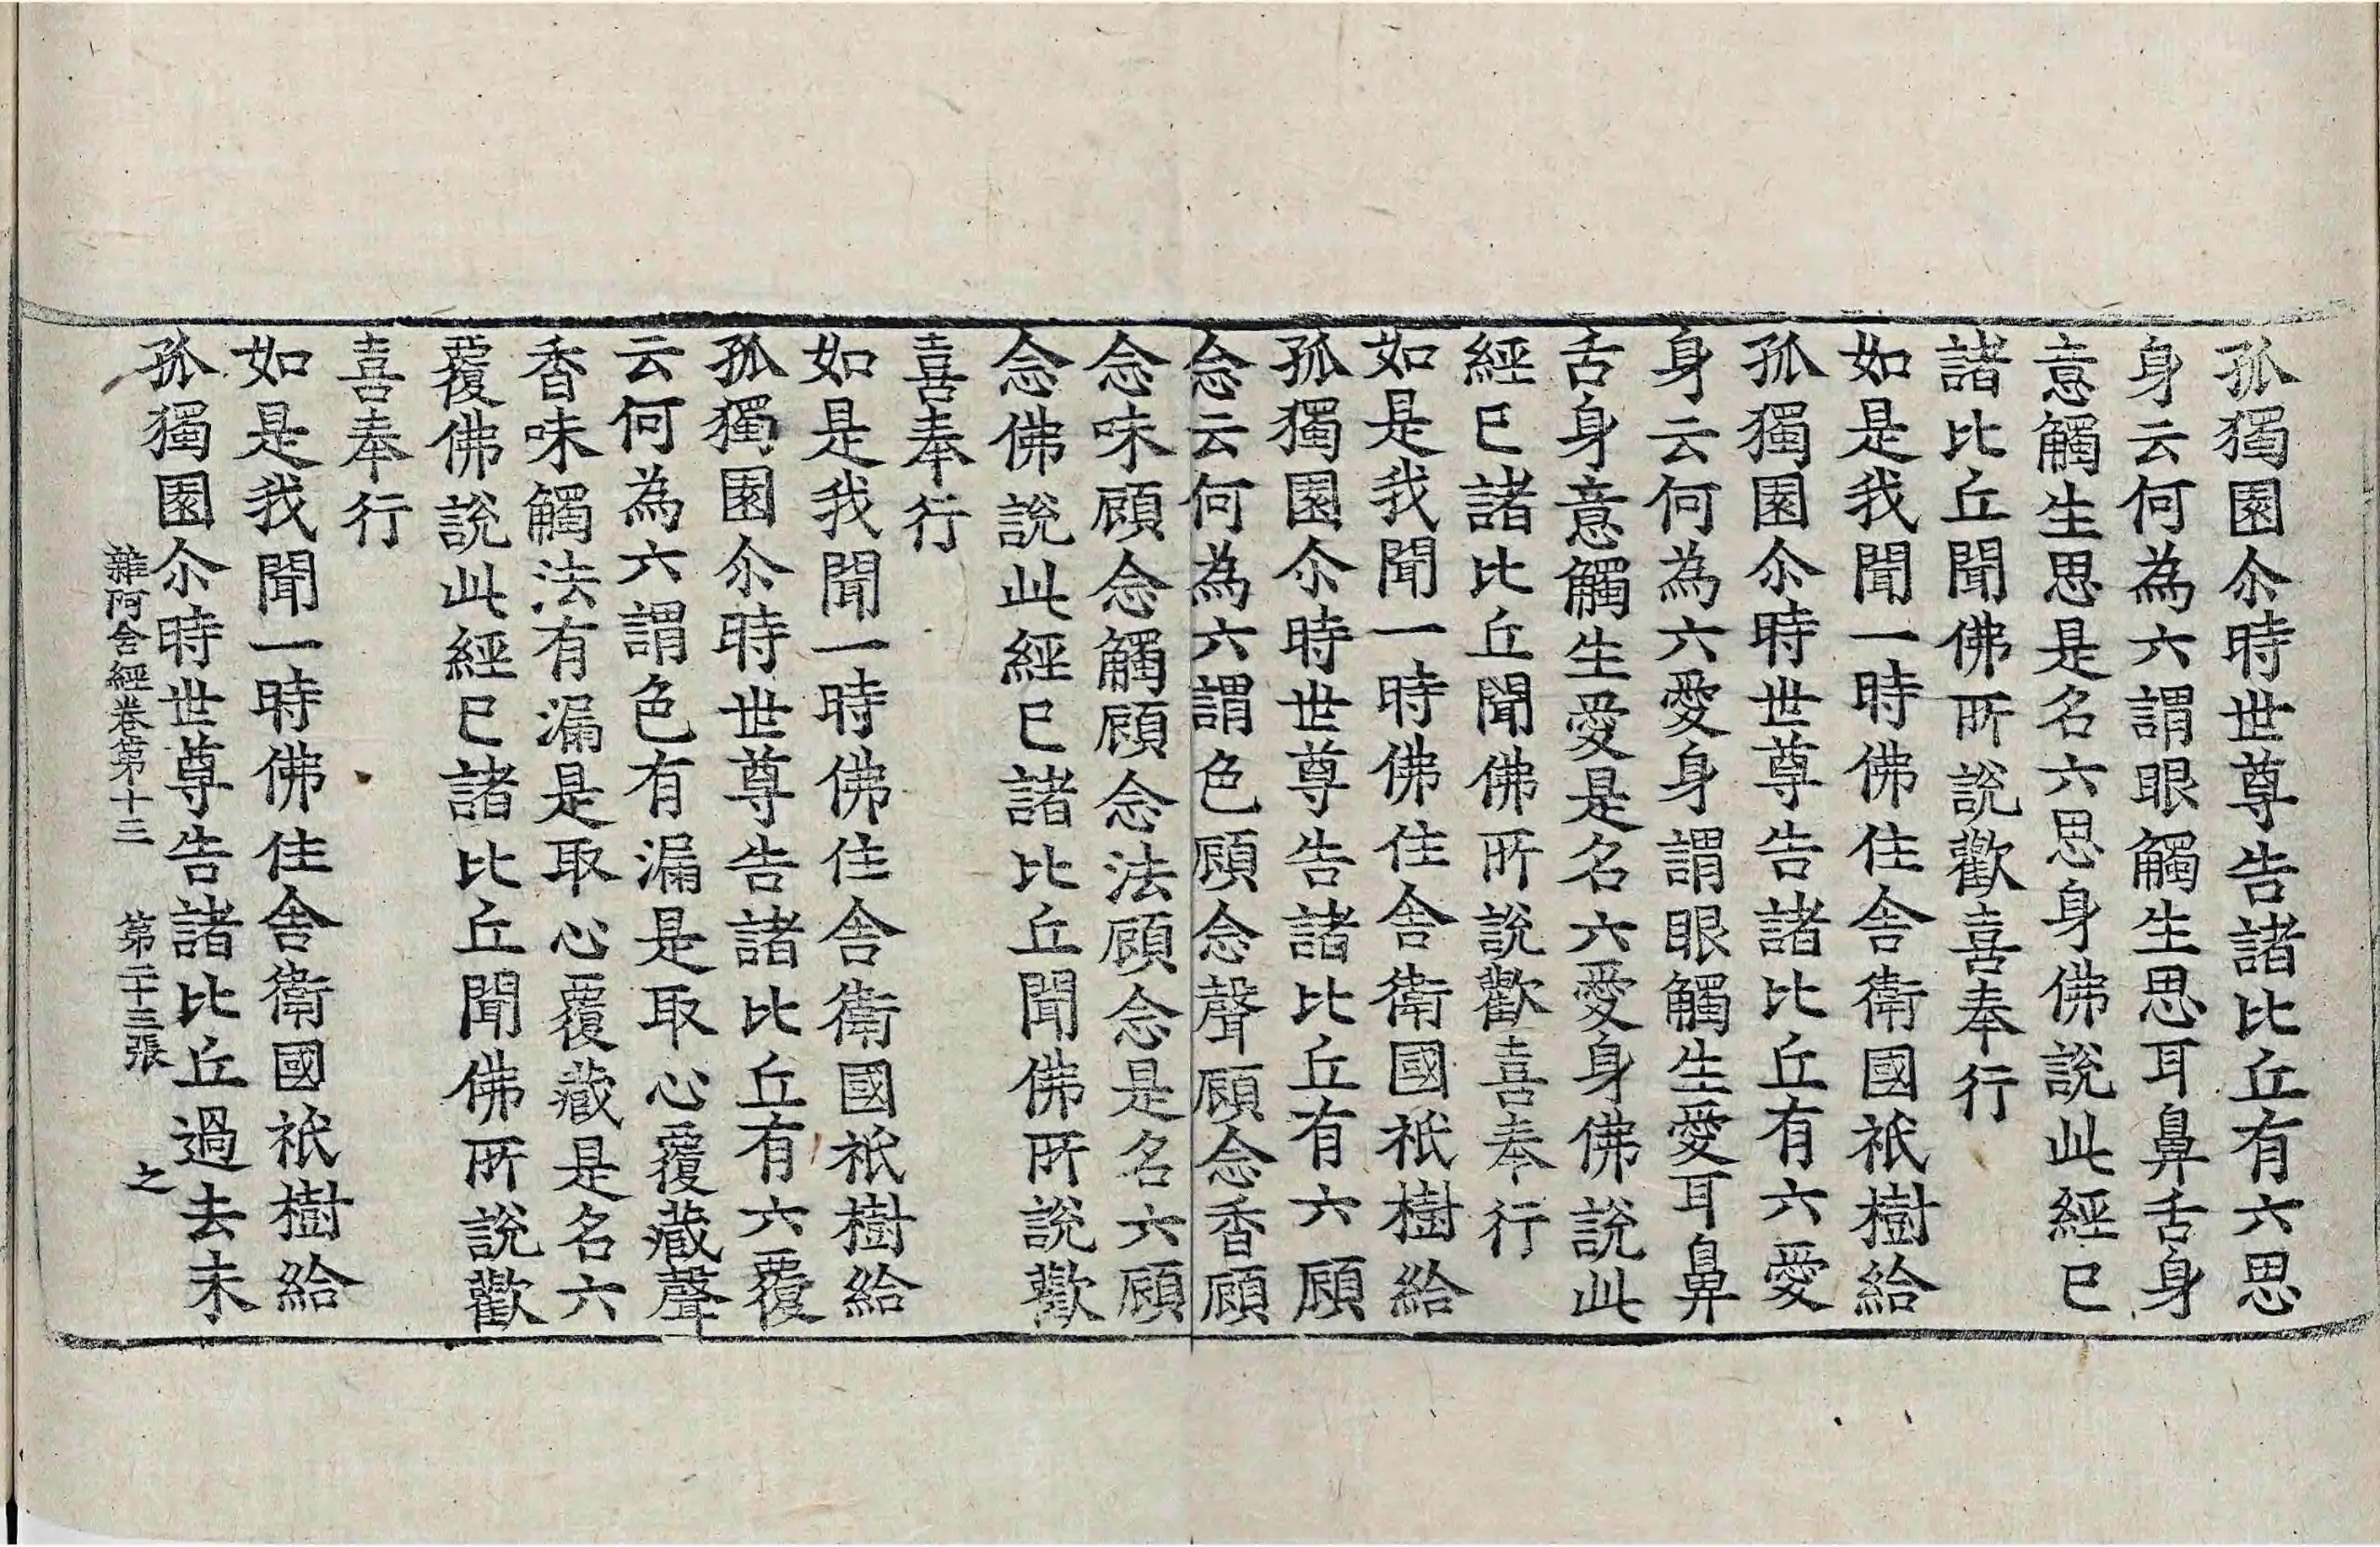 孤獨園尒時世尊告諸比丘有六思
身云何為六謂眼觸生思耳鼻舌身
意觸生思是名六思身佛說此經已
諸比丘聞佛所說歡喜奉行
如是我聞一時佛住舍衛國祇樹給
孤獨園尒時世尊告諸比丘有六愛
身云何為六愛身謂眼觸生愛耳鼻
舌身意觸生愛是名六愛身佛說此
經已諸比丘聞佛所說歡喜奉行
如是我聞一時佛住舍衛國祇樹給
孤獨園尒時世尊告諸比丘有六顧
念云何為六謂色顧念聲顧念香顧
念味顧念觸顧念法顧念是名六顧
念佛說此經已諸比丘聞佛所說歡
喜奉行
如是我聞一時佛住舍衛國祇樹給
孤獨園尒時世尊告諸比丘有六覆
云何為六謂色有漏是取心覆藏聲
香味觸法有漏是取心覆藏是名六
覆佛說此經已諸比丘聞佛所說歡
喜奉行
如是我聞一時佛住舍衛國祇樹給
孤獨園尒時世尊告諸比丘過去未
雜阿含經卷第十三 第二十三張 之